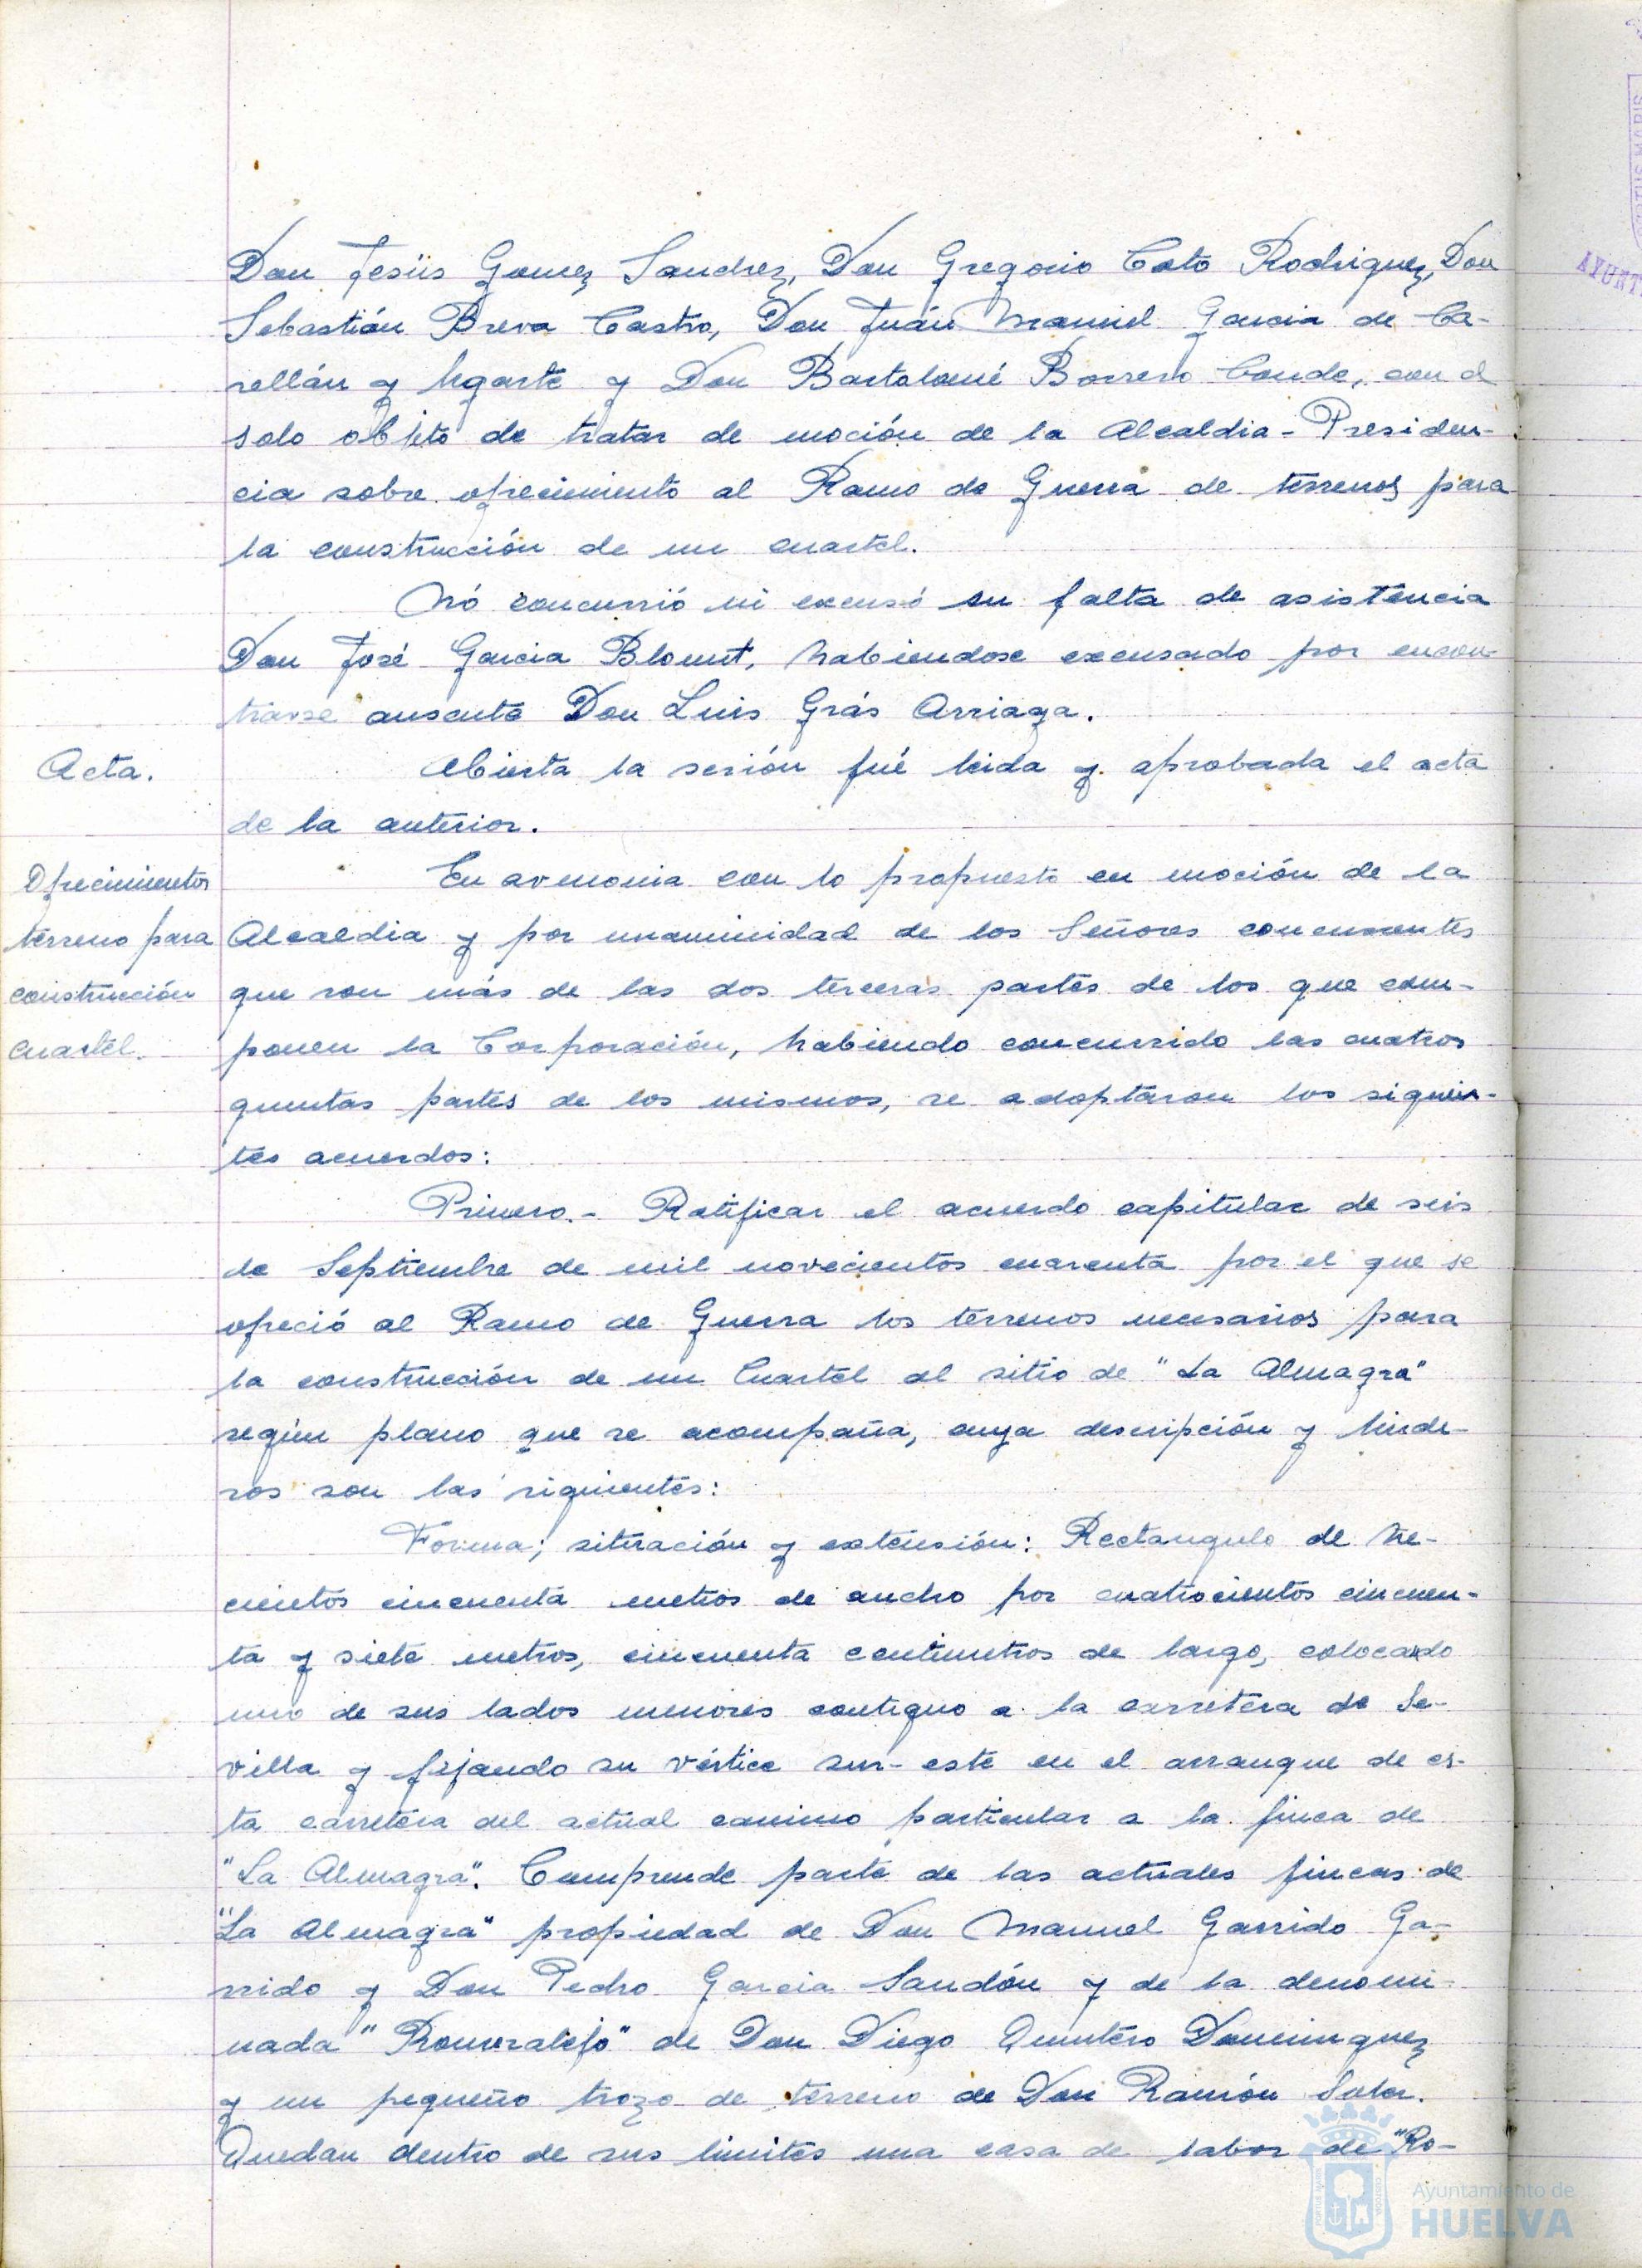 Don Jesús Gomez Sanchez, Don Gregorio Coto Rodriguez, Don
Sebastián Breva Castro, Don Juán Manuel Garcia de Ca-
rellán y Ugarte y Don Bartolomé Borrero Conde, con el
solo objeto de tratar de moción de la Alcaldia-Presiden-
cia sobre ofrecimiento al Ramo de Guerra de terrenos para
la construcción de un cuartel.
Nó concurrió ni excusó su falta de asistencia
Don José Garcia Blount, habiendose excusado por encon-
trarse ausente Don Luis Grás Arriaga.
Acta.
Abierta la sesión fué leida y aprobada el acta
de la anterior.
Ofrecimientos
terreno para
construcción
cuartel.
En armonia con lo propuesto en moción de la
Alcaldia y por unanimidad de los Señores concurrentes
que son más de las dos terceras partes de los que com-
ponen la Corporación, habiendo concurrido las cuatros
quintas partes de los mismos, se adoptaron los siguien-
tes acuerdos:
Primero.- Ratificar el acuerdo capitular de seis
de Septiembre de mil novecientos cuarenta por el que se
ofreció al Ramo de Guerra los terrenos necesarios para
la construcción de un Cuartel al sitio de "La Almagra"
según plano que se acompaña, cuya descripción y linde-
ros son las siguientes:
Forma; situación y extensión: Rectangulo de tre-
cientos cincuenta metros de ancho por cuatrocientos cincuen-
ta y siete metros, cincuenta centimetros de largo, colocado
uno de sus lados menores contiguo a la carretera de Se-
villa y fijando su vértice sur-este en el arranque de es-
ta carretera del actual camino particular a la finca de
"La Almagra". Comprende parte de las actuales fincas de
"La Almagra" propiedad de Don Manuel Garrido Ga-
rrido y Don Pedro Garcia Sandón y de la denomi-
nada "Romeralejo" de Don Diego Quintero Dominguez
y un pequeño trozo de terreno de Don Ramón Soler.
Quedan dentro de sus limites una casa de labor de "Ro-
Ayuntamiento de
HUELVA